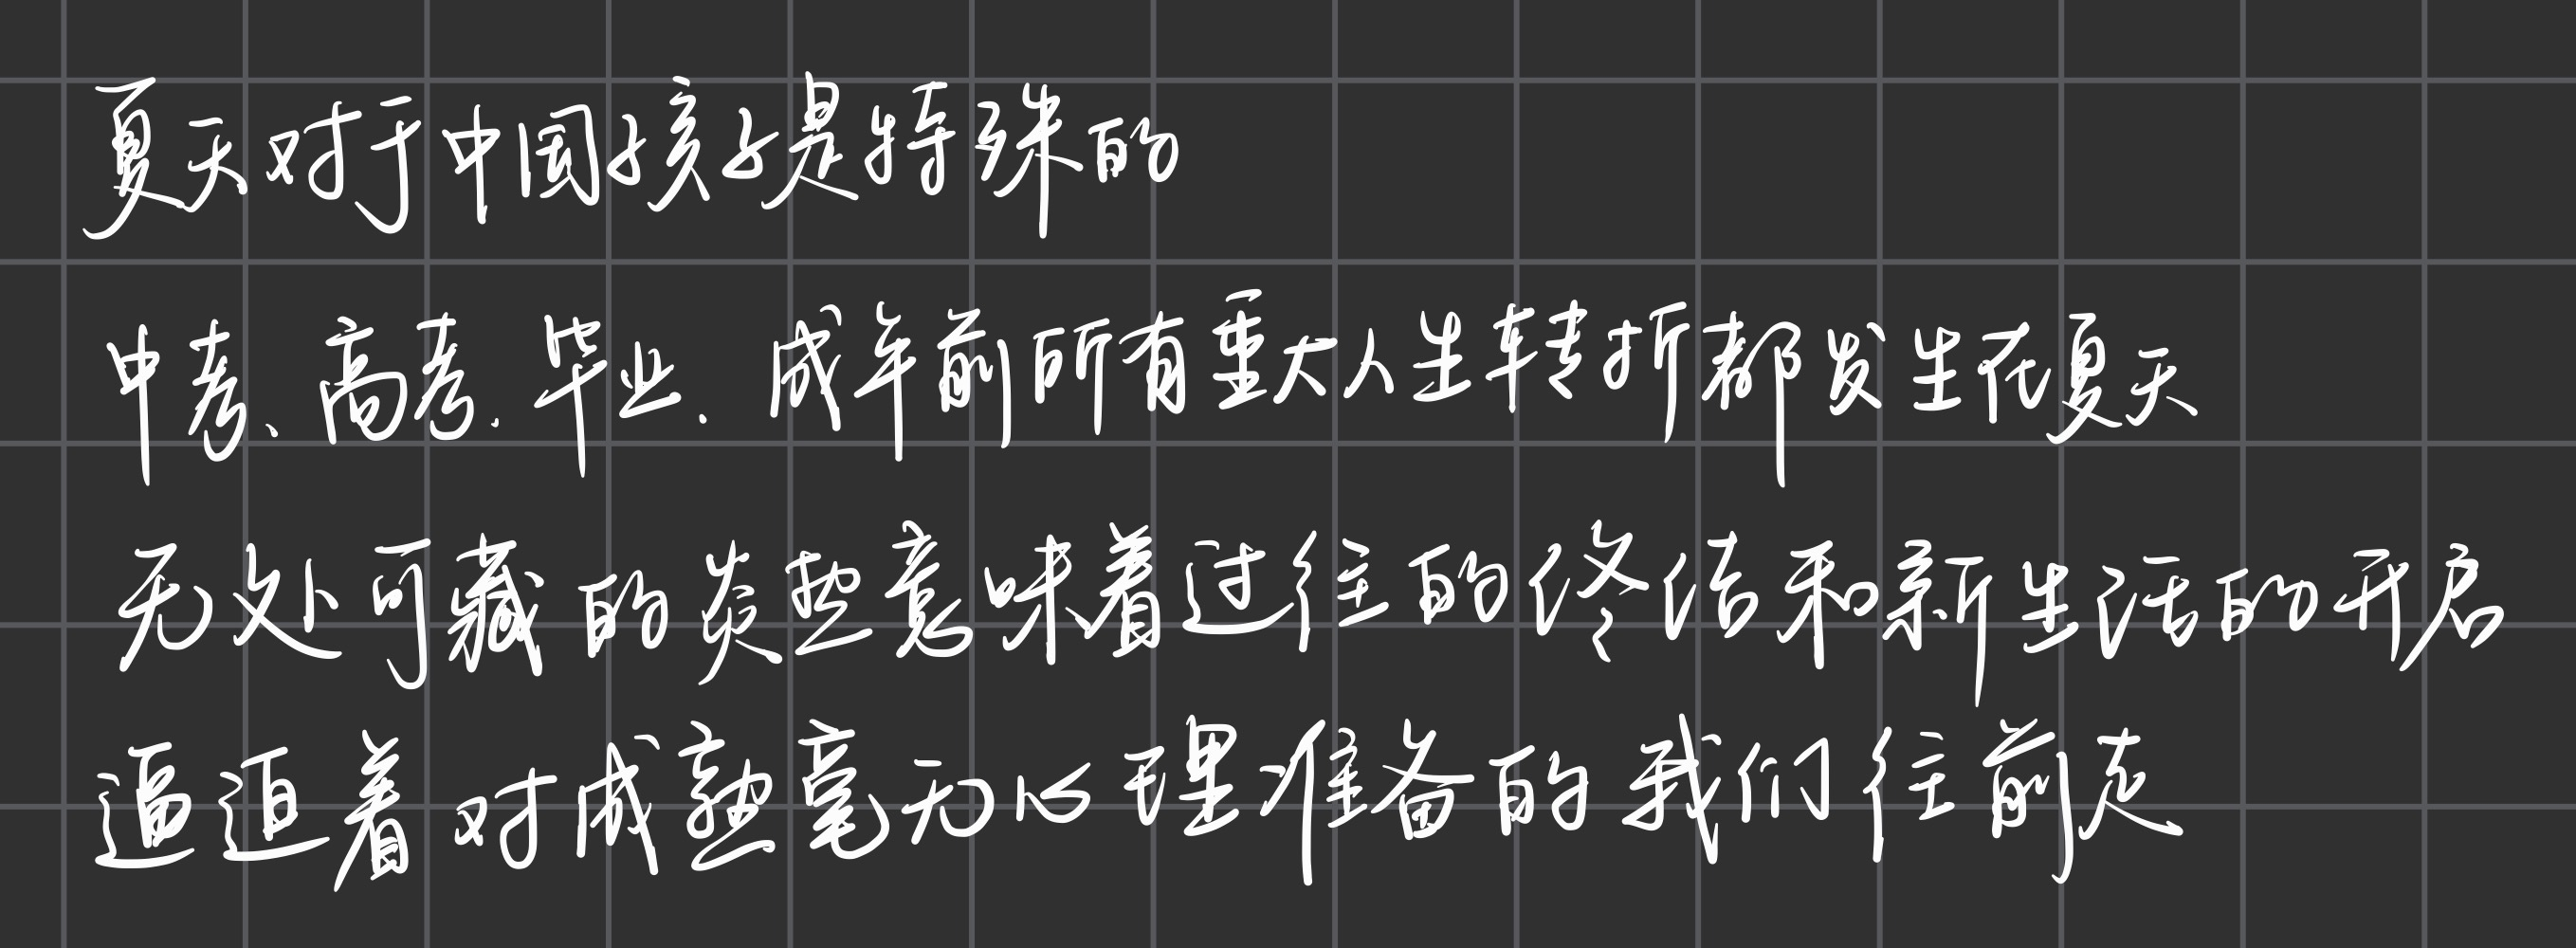 夏天对于中国孩子是特殊的
中考、高考、毕业、成年前所有重大人生转折都发生在夏天
无处可藏的炎热意味着过往的终结和新生活的开启
逼迫着对成熟毫无心理准备的我们往前走